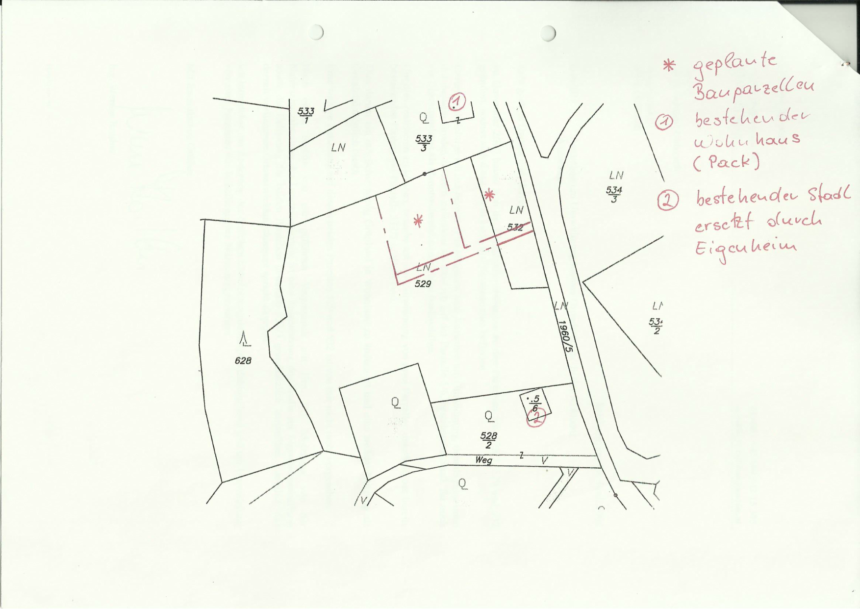 * geplante
Bauparzellen
1 bestehender
Wohnhaus
(Pack)
2 bestehender Stadl
ersetzt durch
Eigenheim
533
1
LN
Q
533
3
1
LN
534
3
LN
532
*
*
LN
529
LN
534
2
LN
1960/5
628
Q
Q
528
2
.5
6
2
Weg
V
V
V
Q